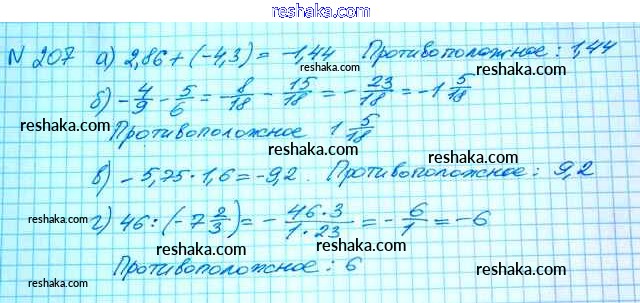 reshaka.com
N 207 а) 2,86+(-4,3)= -1,44 Противоположное: 1,44
reshaka.com
б) -4/9 - 5/6 = -8/18 - 15/18 = -23/18 = -1 5/18
reshaka.com reshaka.com
Противоположное 1 5/18
reshaka.com
в) -5,75·1,6=-9,2. Противоположное: 9,2
reshaka.com reshaka.com reshaka.com
г) 46:(-7 2/3)= -46·3/1·23 = -6/1 = -6
reshaka.com
Противоположное: 6
reshaka.com reshaka.com
reshaka.com